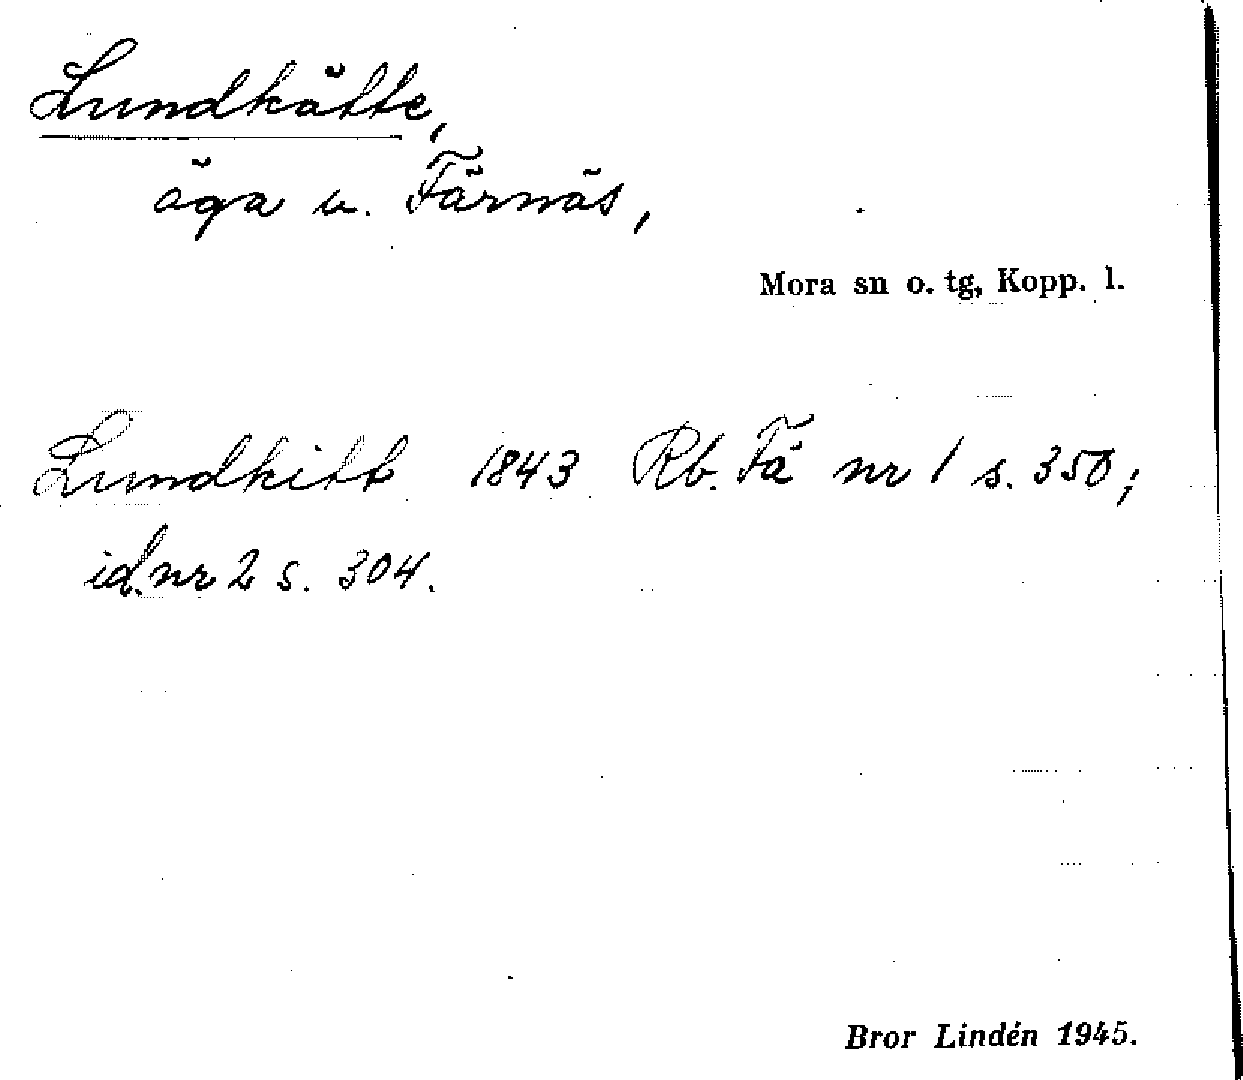 Lundkätte,
äga u. Färnäs,
Mora sn o. tg, Kopp. l.
Lundkitt 1843 Rb. Fä nr 1 s. 350;
id. nr 2 s. 304.
Bror Lindén 1945.